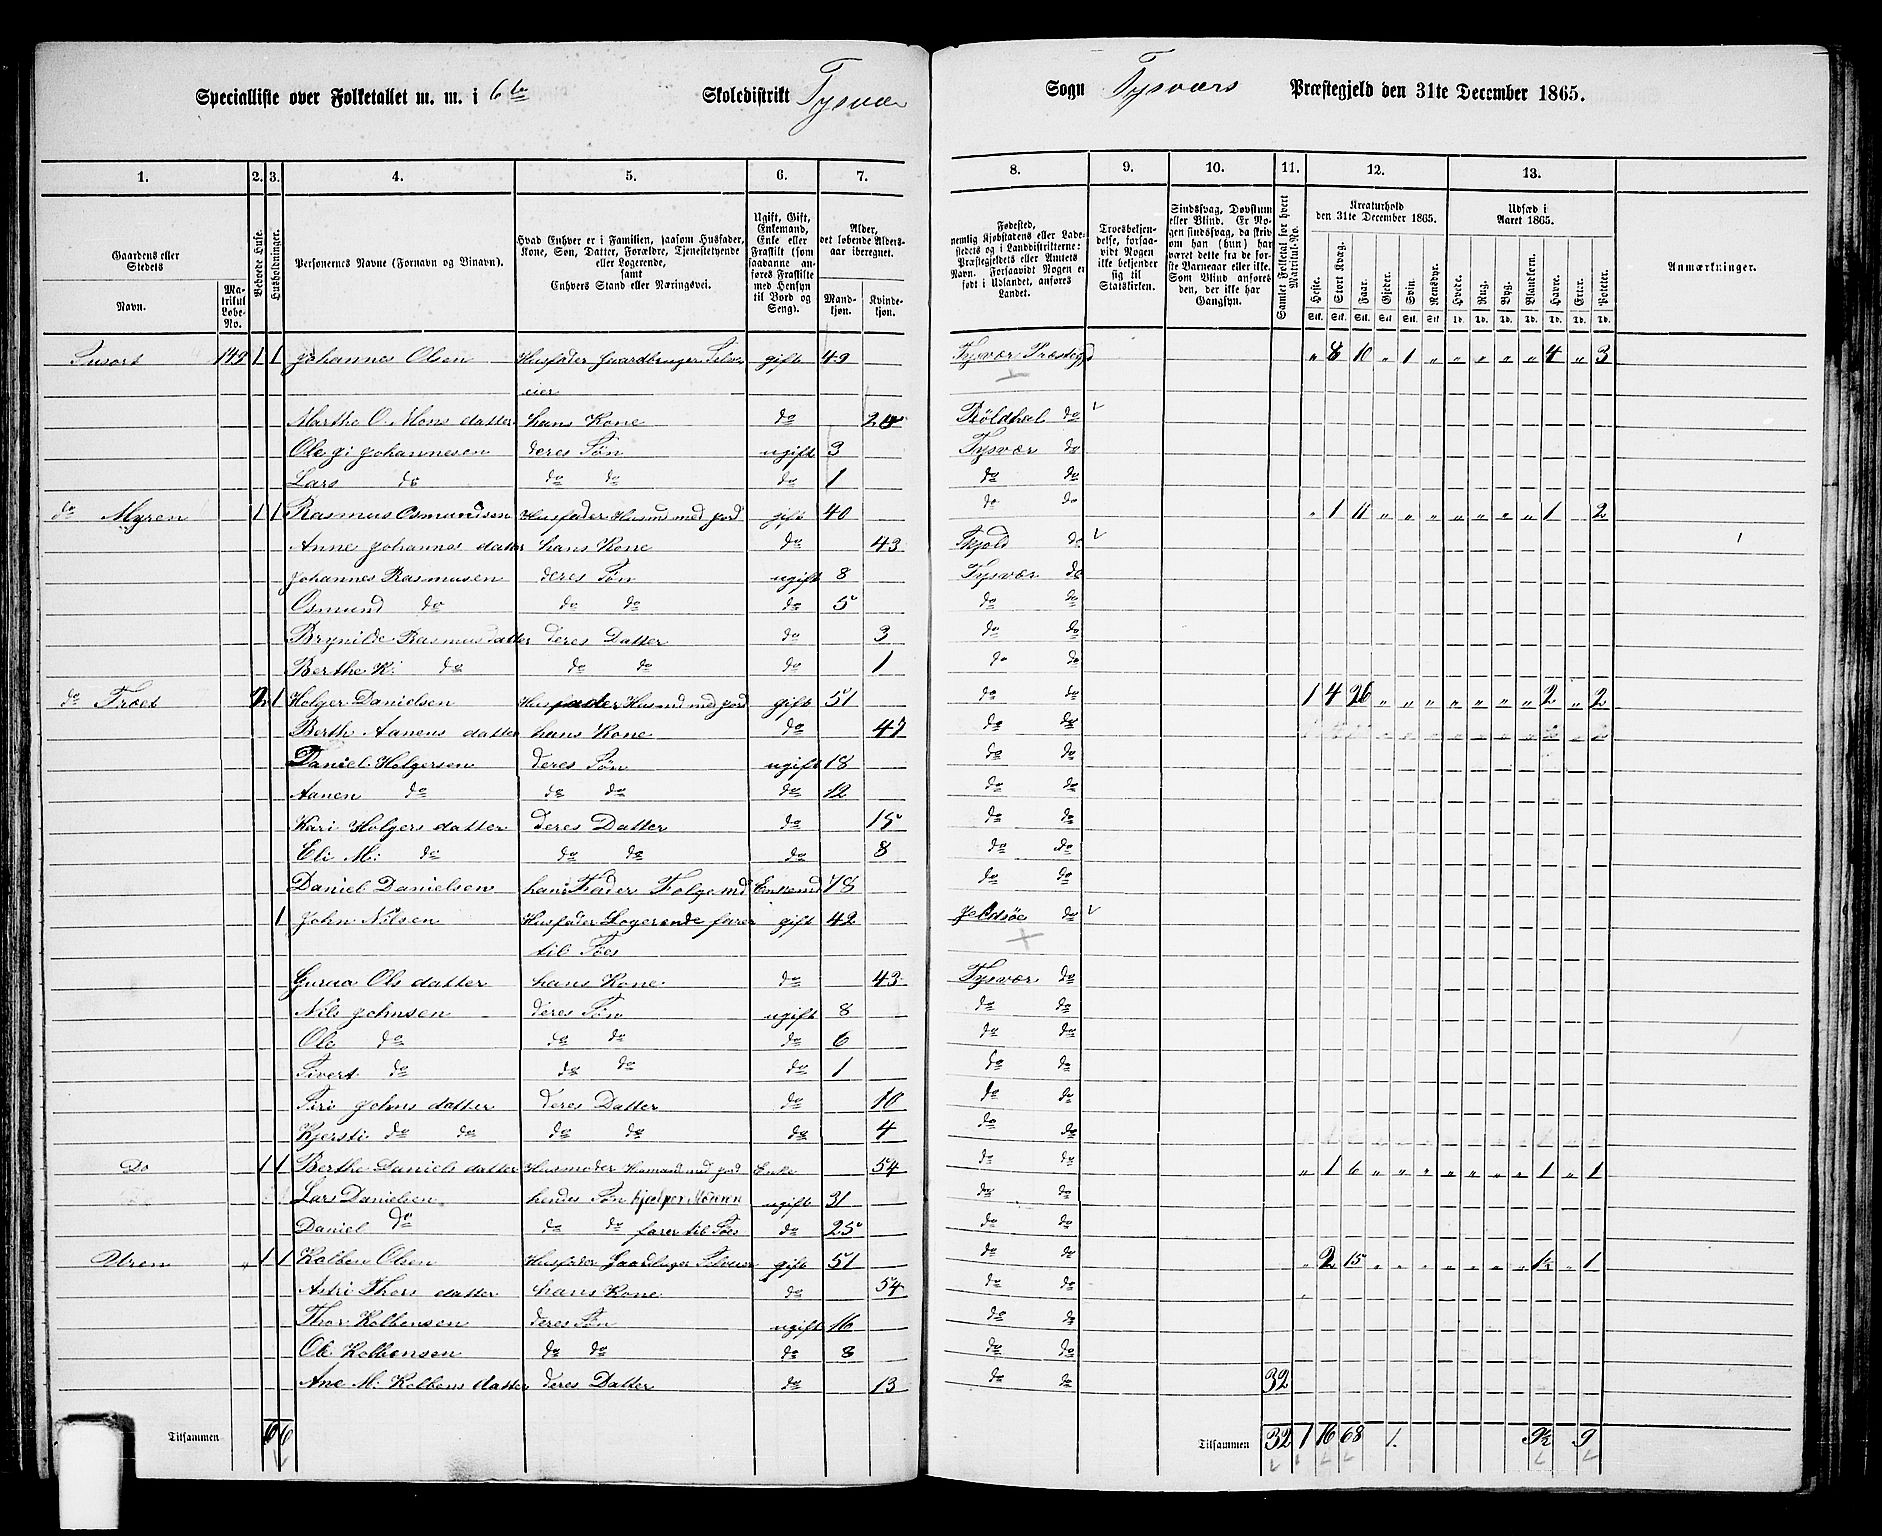 Specialliste over Folketallet m. m. i 6te Skoledistrikt Tysvær Sogn Tysværs Præstegjeld den 31te December 1865.
1. 2. 3. 4. 5. 6. 7. 8. 9. 10. 11. 12. 13.
Gaardens eller Stedets Navn. Matrikul Løbe-No. Beboede Huse. Husholdninger. Personernes Navne (Fornavn og Tilnavn). Hvad Enhver er i Familien, saasom Husfader, Kone, Søn, Datter, Forældre, Tjenestetyende eller Logerende, samt Enhvers Stand eller Næringsvei. Ugift, Gift, Enkemand, Enke eller Fraskilt (som saadanne anføres Fraskilte med Hensyn til Bord og Seng). Alder, det løbende Alders-aar iberegnet. Mandkjøn. Kvindekjøn. Fødested, nemlig Kjøbstadens eller Ladestedets og i Landdistrikterne: Præstegjeldets eller Annexets Navn. Forsaavidt Nogen er født i Udlandet, anføres Landet. Troesbekjendelse, forsaavidt Nogen ikke bekjender sig til Statskirken. Sindssvag, Døvstum eller Blind. Samlet Folketal for hvert Matrikul-No. Kreaturhold den 31te December 1865. Heste. Stort Kvæg. Faar. Gjeder. Svin. Rensdyr. Udsæd i Aaret 1865. Hvede. Rug. Byg. Blandkorn. Havre. Erter. Poteter. Anmærkninger.
149 1 1 Johannes Olsen Husfader Gaardbruger Selv- gift 49 Tysvær Præstegjd " 8 10 " 1 " " " " " 4 " 3
eier
Martha O. Monsdatter hans Kone do Röldhal do
Ole Johannesen deres Søn ugift 3 Tysvær do
Lars do do do do 1 do do
do Myren 1 1 Rasmus Osmundsen Husfader Husmd med jord gift 40 do do " 1 11 " " " " " " " 1 2
Anne Johannsdatter hans Kone do 43 Skjold do
Johannes Rasmusen deres Søn ugift 8 Tysvær do
Osmund do do do do 5 do do
Brynilde Rasmusdatter deres Datter do 3 do do
Berthe K: do do do do 1 do do
do Træet 2 1 Holger Danielsen Husfader Husmd med jord gift 51 do do 1 4 26 " " " " " " " 2 " 2
Berth Aanensdatter hans Kone do 47 do do
Daniel Holgersen deres Søn ugift 18 do do
Aanen do do do do 12 do do
Kari Holgersdatter deres Datter do 15 do do
Eli M: do do do do 8 do do
Daniel Danielsen hans Fader Folgemd Enkemd 78 do do
1 John Nilsen Husfader Logerende farer gift 42 do
til Søes
Guroa Olsdatter hans Kone do 43 Tysvær do
Nils Johnsen deres Søn ugift 8 do do
Ole do do do do 6 do do
Sivert do do do do 1 do do
Siri Johnsdatter deres Datter do 10 do do
Kjersti do do do do do 4 do do
Do 1 1 Berthe Danielsdatter Husmoder Husmand med jord Enke 54 do do " 1 6 " " " " " " " 1 " 1
Lars Danielsen hendes Søn hjælper Moderen ugift 31 do do
Daniel do do do farer til Søes do 25 do do
Uren " 1 1 Kolben Olsen Husfader Gaardbruger Selveier gift 51 do do " 2 15 " " " " " " " 1½ " 1
Astri Thorsdatter hans Kone do 54 do do
Thor Kolbensen deres Søn ugift 16 do do
Ole Kolbensen do do do 8 do do
Ane M: Kolbensdatter deres Datter do 13 do do 32
Tilsammen 6 6 Tilsammen 32 1 16 68 1. 9½ 9